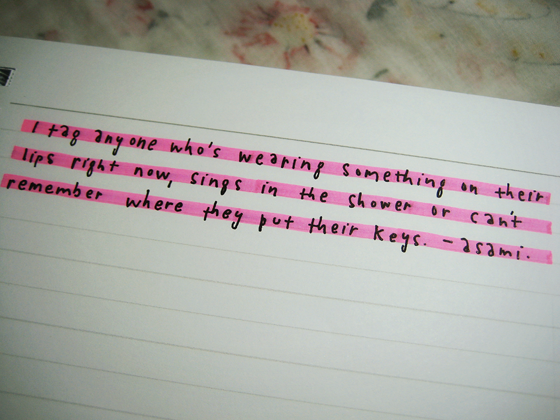 I tag anyone who's wearing something on their
lips right now, sings in the shower or can't
remember where they put their keys. - asami.